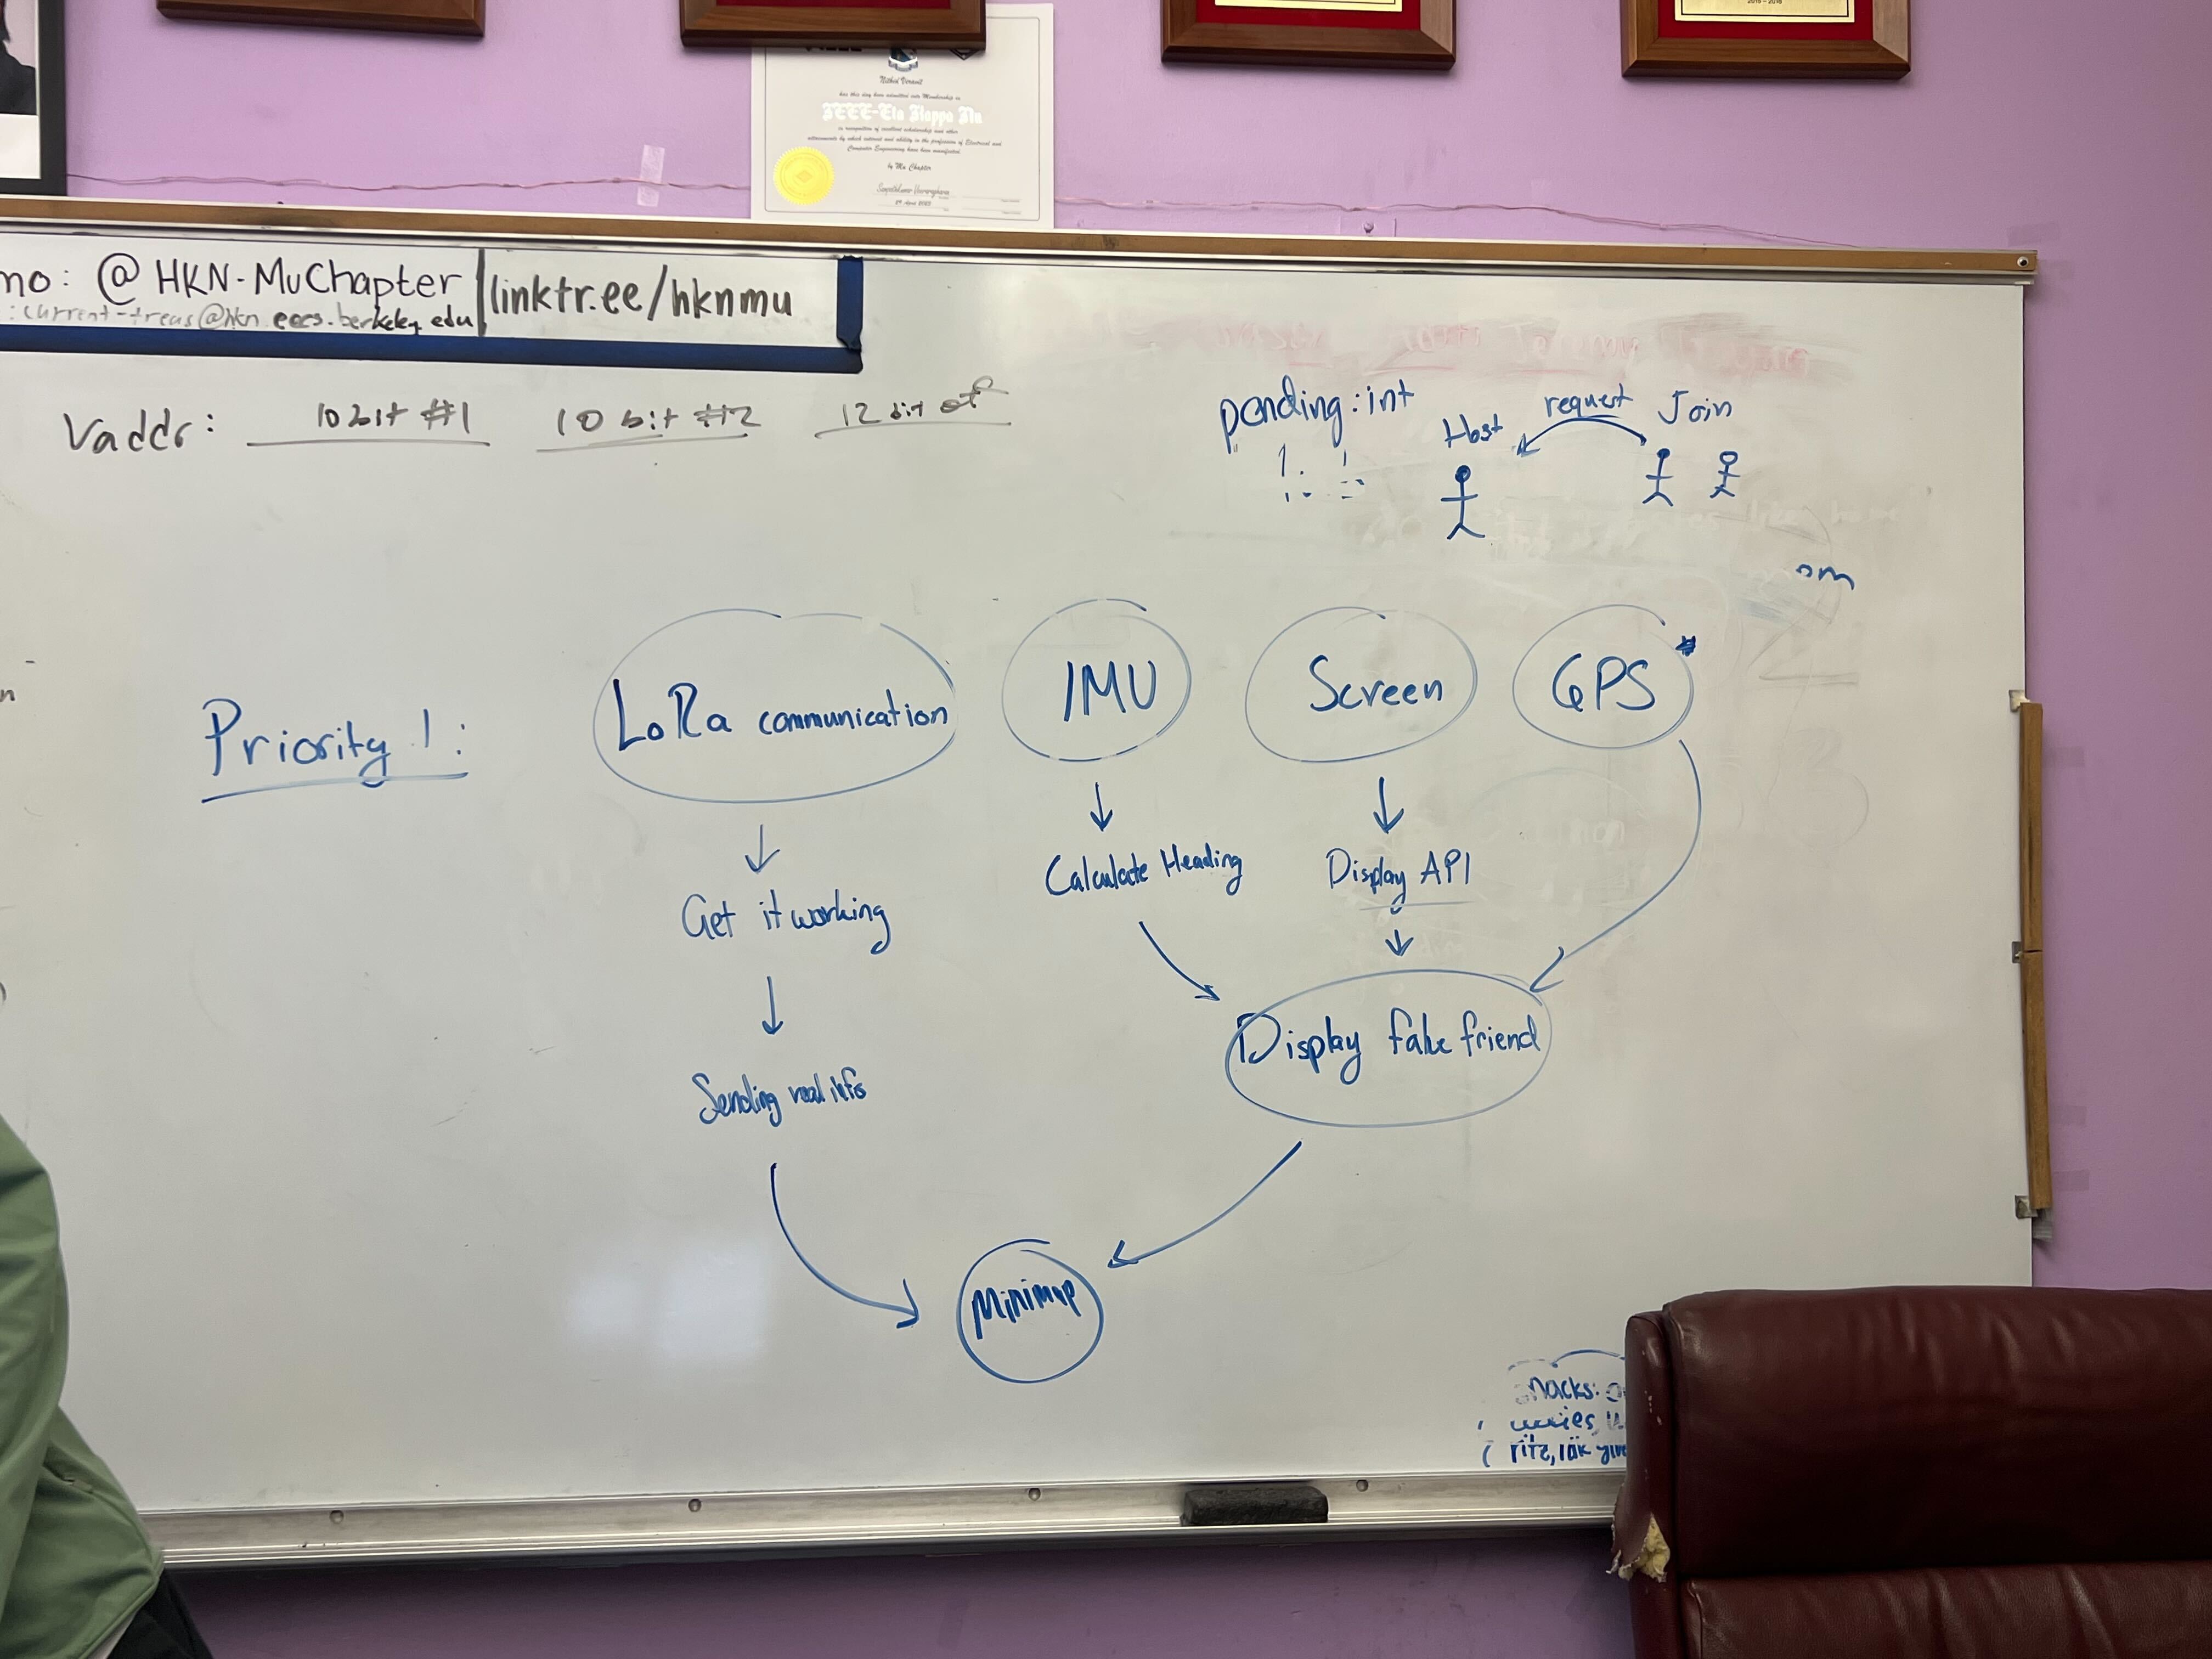 2015 - 2016
Nikhil
has this day been admitted into Membership in
IEEE-Eta Kappa Nu
in recognition of excellent scholarship and other
attainments by which interest and ability in the profession of Electrical and
Computer Engineering have been manifested.
by Mu Chapter
no: @HKN-MuChapter
linktr.ee/hknmu
:current-treas@hkn.eecs.berkeley.edu
Vaddr: 10 bit #1 10 bit #2 12 bit
pending: int
Host request Join
om
Priority 1: LoRa communication IMU Screen GPS*
Calculate Heading Display API
Get it working
Display fake friend
Sending real info
Minimap
snacks:
ritz,